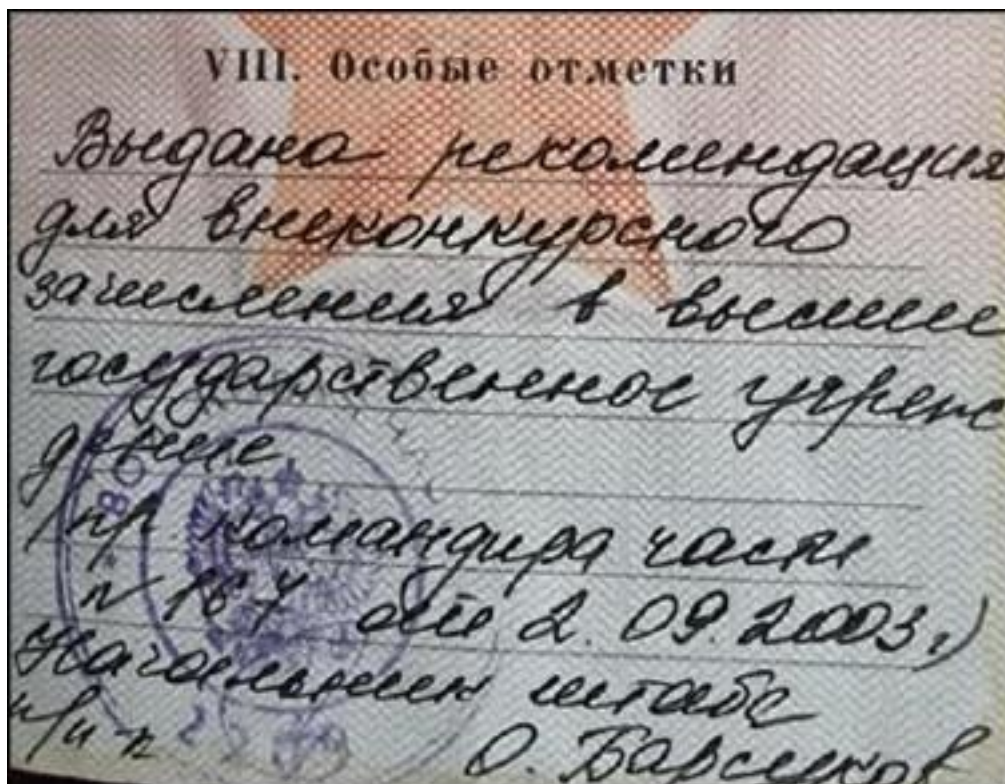 VIII. Особые отметки
Выдана рекомендация
для внеконкурсного
зачисления в высшее
государственное учреж
дение
(пр. командира части
N 167 от 2.09.2003г)
Начальник штаба
О. Барсуков